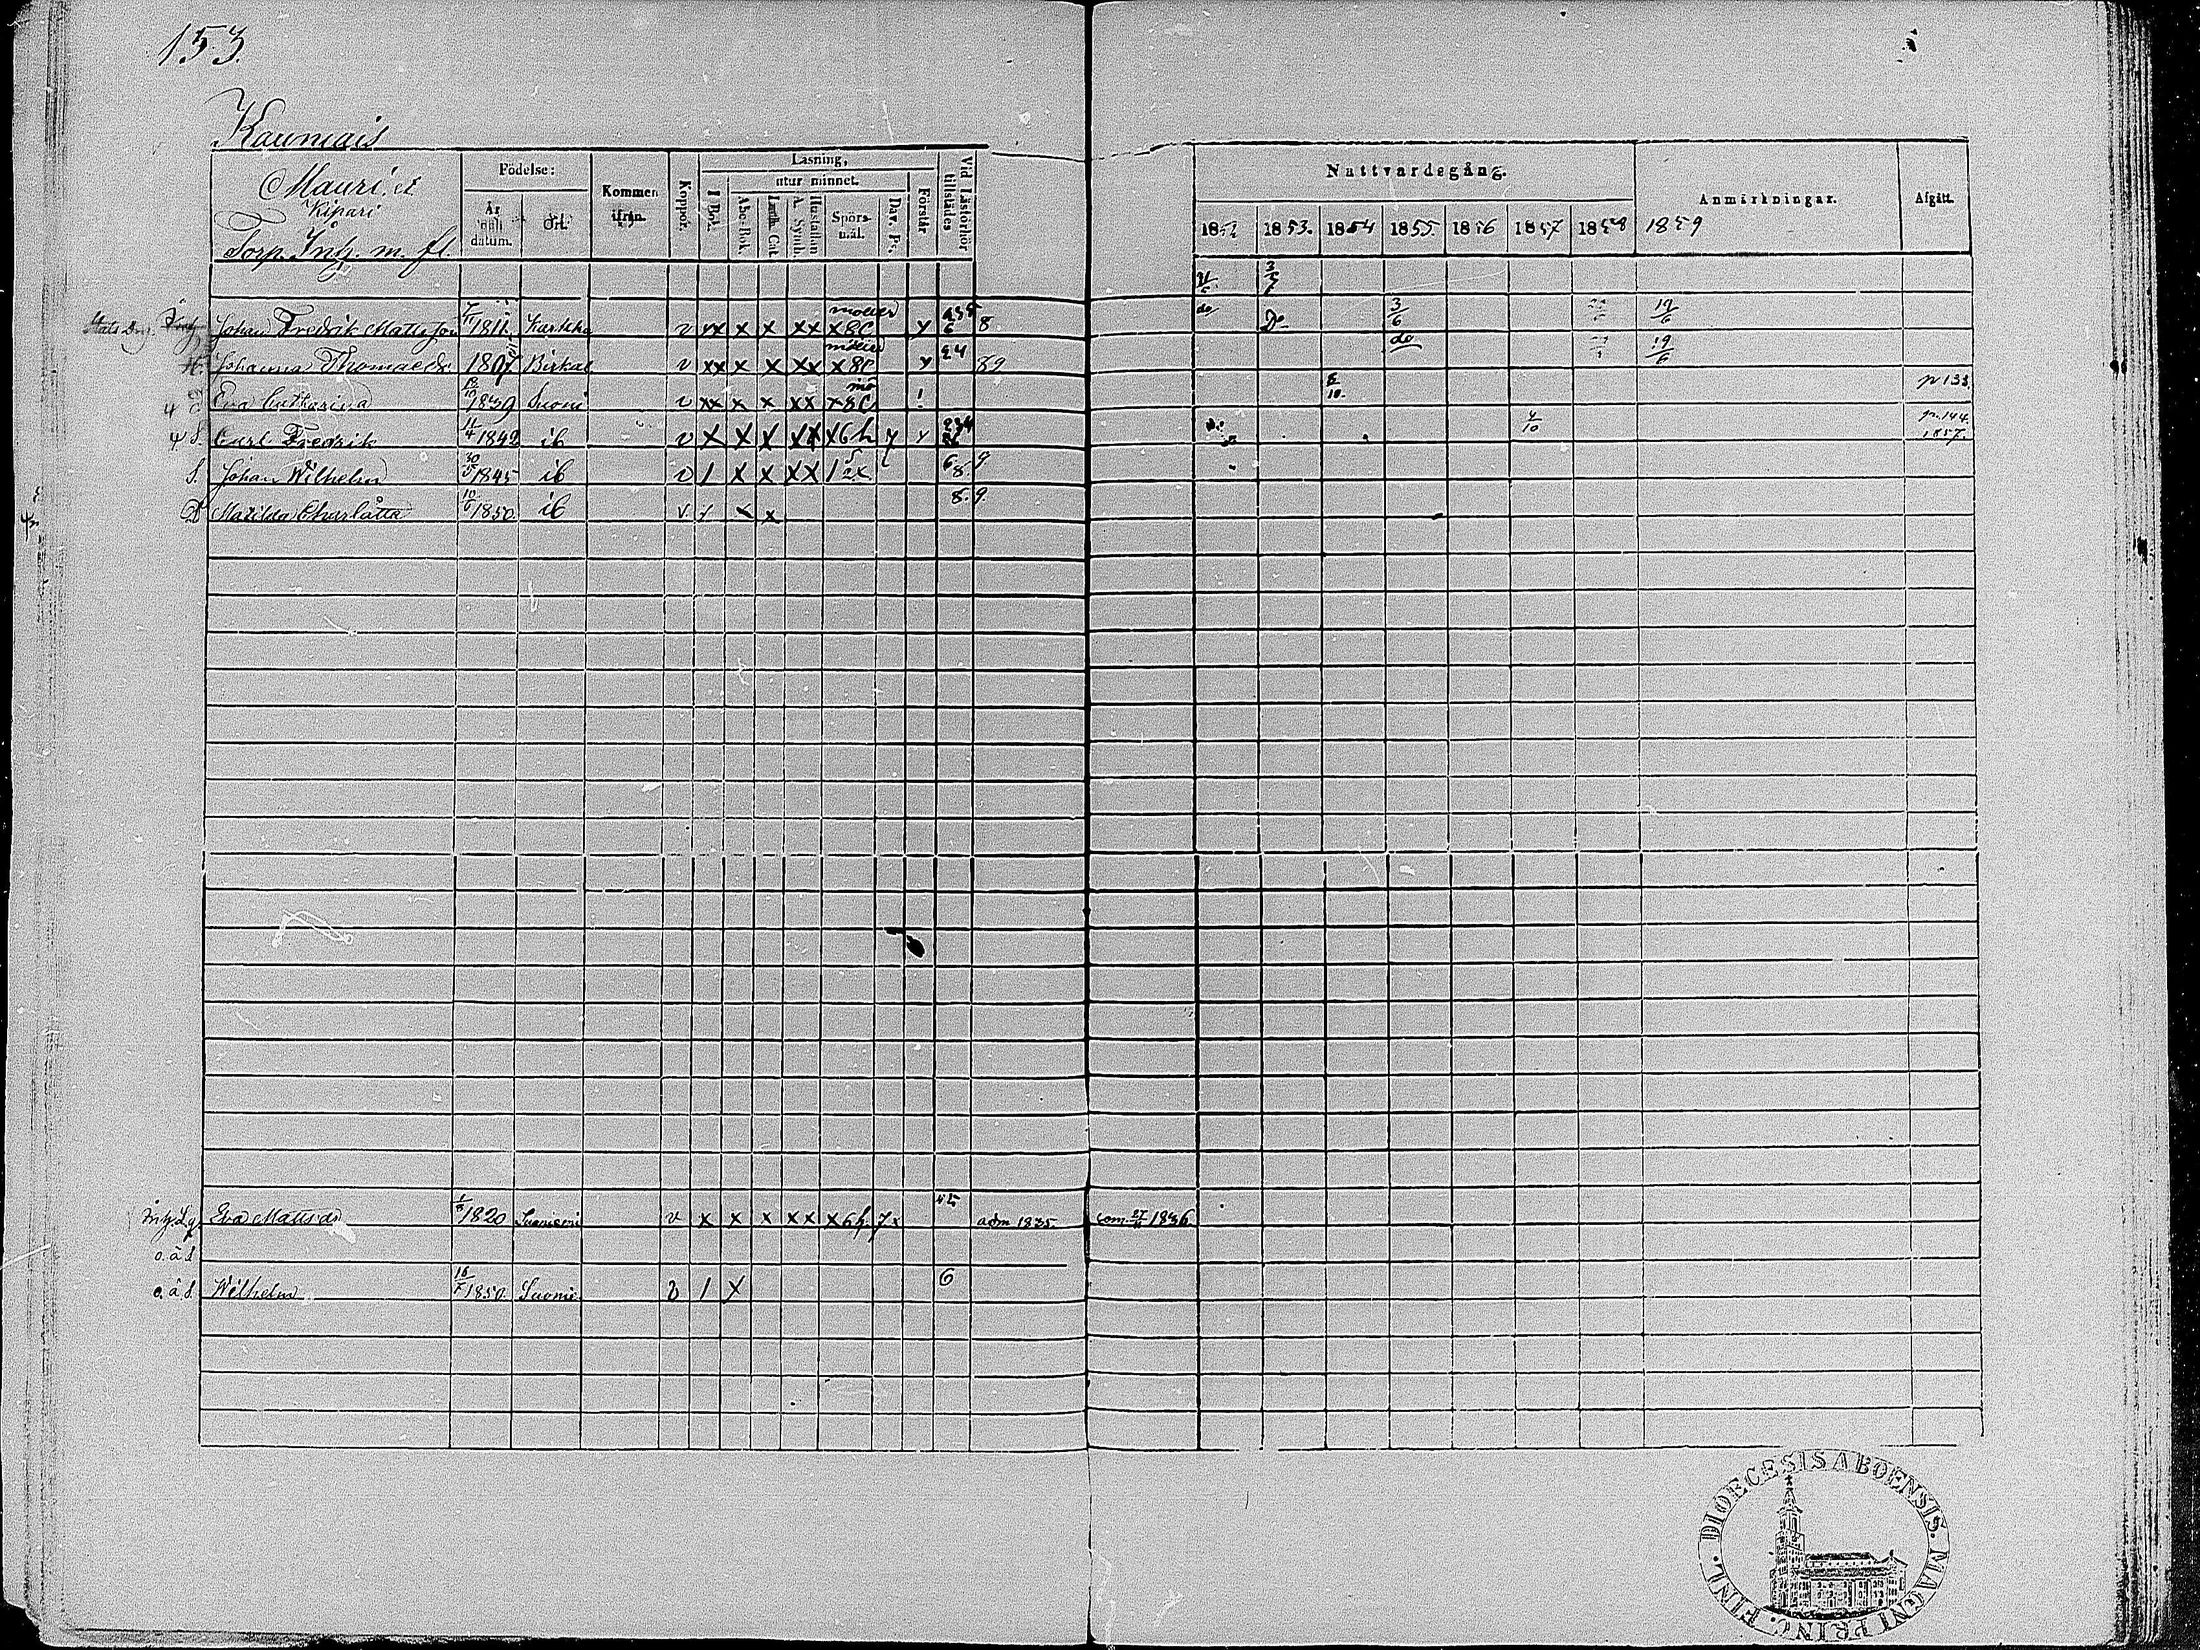 153.
Kaumais
Mauri. et
Kipari
Torp. Inh. m. fl.
Födelse: År och datum. Ort. Kommen ifrån. Koppor. Läsning, I Bok. utur minnet. Abc-Bok Luth. Cat. Hustaflan A. Symb. Spörsmål. Dav. Ps: Förstår Vid Läsförhör tillstädes
Nattvardsgång. 1852 1853. 1854 1855. 1856 1857 1858 Anmärkningar. 1859 Afgått.
3/5
Johan Fredrik Mattsson 1811 Karkku v xx x x xx x8C y 6 8 do Do 3/6 19/6
H. Johanna Thomasdr 1807 Birkal v xx x x xx x8C y 24 89 do 19/6
D Eva Catharina 1839 Suoni v xx x x xx x8C ! 10. p 133
S. Carl Fredrik 1842 ib v x x x xx x6h y y 234 4/10 p. 144. 1857.
S. Johan Wilhelm 30/5 1845 ib v 1 x x xx 1 2x 6 8 9
D Matilda Charlåtta 10/6 1850. ib v x x 8. 9.
Inh. Eva Mattsdr 1820 Suoniemi v x x x xx x6h. 7 x adm 1835 com. 1836
o.ä.S
o.ä.S. Wilhelm 1850. Suonie v 1 x 6
DIOECESIS ABOENSIS. MAGNI PRINC. FINL.